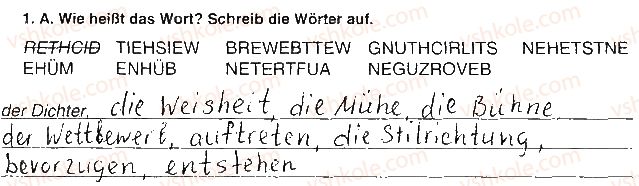 1. A. Wie heißt das Wort? Schreib die Wörter auf.
RETHCID TIEHSIEW BREWEBTTEW GNUTHCIRLITS NEHETSTNE
EHÜM ENHÜB NETERTFUA NEGUZROVEB
der Dichter, die Weisheit, die Mühe, die Bühne
der Wettbewerb, auftreten, die Stilrichtung,
bevorzugen, entstehen